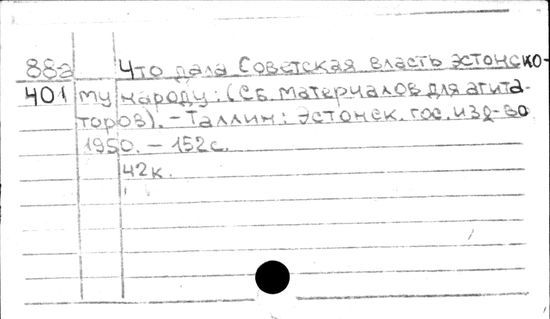 88а Что дала Советская власть эстонско-
401 му народу: (Сб. материалов для агита-
торов). - Таллин: Эстонск. гос. изд-во
1950. - 152с.
42к.